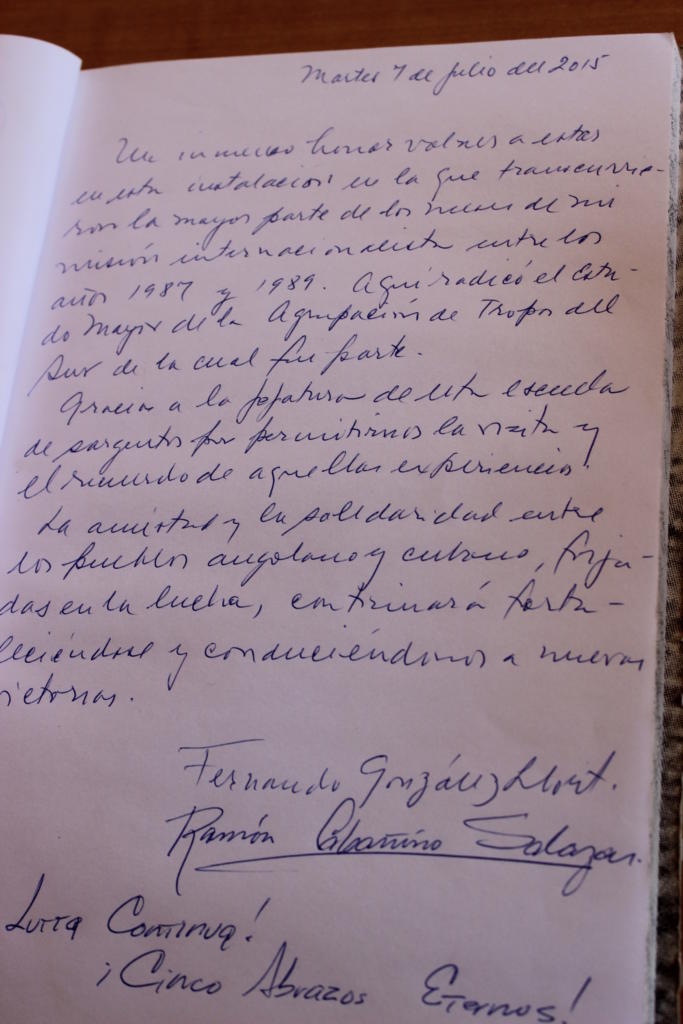 Martes 7 de julio del 2015
Un inmenso honor volver a estar
en esta instalación en la que transcurrie-
ron la mayor parte de los meses de mi
misión internacionalista entre los
años 1987 y 1989. Aquí radicó el Esta-
do Mayor de la Agrupación de Tropas del
Sur de la cual fui parte.
Gracias a la jefatura de esta escuela
de sargentos por permitirnos la visita y
el recuerdo de aquellas experiencias.
La amistad y la solidaridad entre
los pueblos angolano y cubano, forja-
das en la lucha, continuará forta-
leciéndose y conduciéndonos a nuevas
victorias.
Fernando González Llort.
Ramón Labañino Salazar.
Lutta Continua!
¡Cinco Abrazos Eternos!